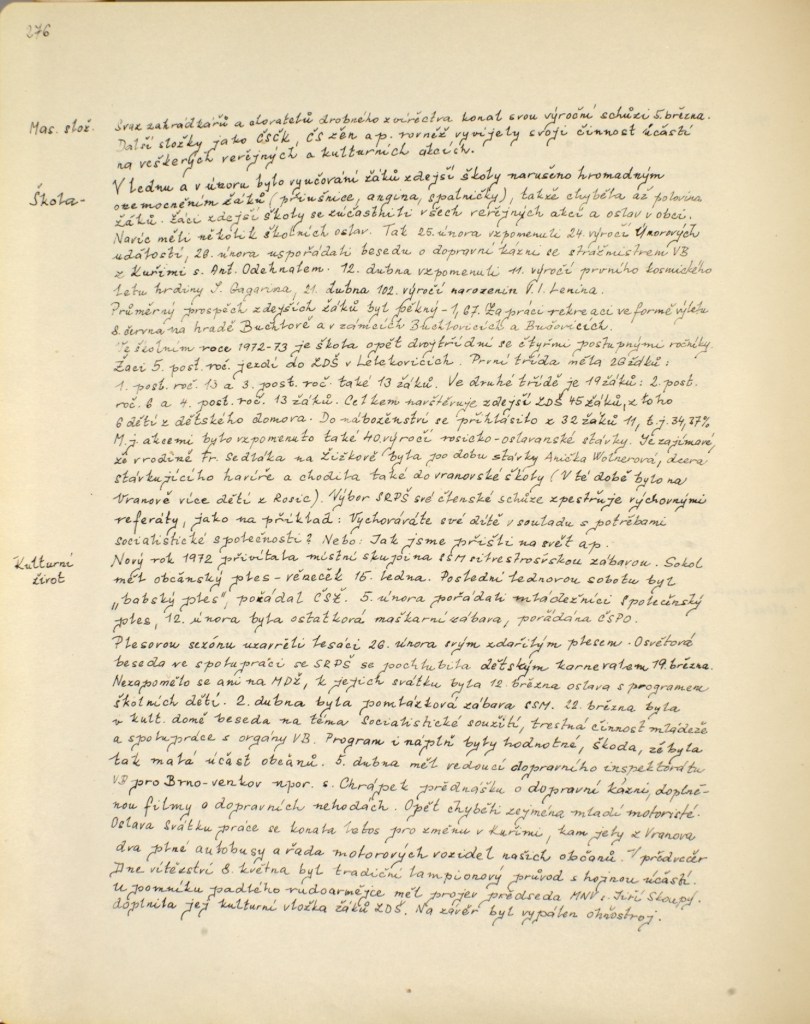 276
Mas. slož. Svaz zahrádkářů a chovatelů drobného zvířectva konal svou výroční schůzi 5. března.
Další složky jako ČSČK, ČS žen a p. rovněž vyvíjely svoji činnost účastí
na veškerých veřejných a kulturních akcích.
Škola- V lednu a v únoru bylo vyučování žáků zdejší školy narušeno hromadným
onemocněním žáků (příušnice, angina, spalničky), takže chyběla až polovina
žáků. Žáci zdejší školy se zúčastnili všech veřejných akcí a oslav v obci.
Navíc měli několik školních oslav. Tak 25. února vzpomenuli 24. výročí Únorových
událostí, 28. února uspořádali besedu o dopravní kázni se strážmistrem VB
z Kuřimi s. Ant. Odehnalem. 12. dubna vzpomenuli 11. výročí prvního kosmického
letu hrdiny J. Gagarina, 21. dubna 102. výročí narozenin V. I. Lenina.
Průměrný prospěch zdejších žáků byl pěkný - 1,67. Za práci rekreaci ve formě výletu
8. června na hradě Buchlově a v zámcích Buchlovicích a Bučovicích.
Ve školním roce 1972-73 je škola opět dvojtřídní se čtyřmi postupnými ročníky.
Žáci 5. post. roč. jezdí do ZDŠ v Lelekovicích. První třída měla 26 žáků:
1. post. roč. 13 a 3. post. roč. také 13 žáků. Ve druhé třídě je 19 žáků: 2. post.
roč. 6 a 4. post. roč. 13 žáků. Celkem navštěvuje zdejší ZDŠ 45 žáků, z toho
6 dětí z dětského domova. Do náboženství se přihlásilo z 32 žáků 11, t. j. 34,37%
M. j. akcemi bylo vzpomenuto také 40. výročí rosicko-oslavanské stávky. Je zajímavé,
že v rodině Fr. Sedláka na Žižkově byla po dobu stávky Anička Wolnerová, dcera
stávkujícího havíře a chodila také do vranovské školy (V té době bylo na
Vranově více dětí z Rosic). Výbor SRPŠ své členské schůze zpestřuje výchovnými
referáty, jako na příklad: Vychováváte své dítě v souladu s potřebami
socialistické společnosti? Nebo: Jak jsme přišli na svět a p.
Kulturní život Nový rok 1972 přivítala místní skupina SSM silvestrovskou zábavou. Sokol
měl občanský ples - věneček 15. ledna. Poslední lednovou sobotu byl
„babský ples", pořádal ČSŽ. 5. února pořádali mládežníci Společenský
ples, 12. února byla ostatková maškarní zábava, pořádána ČSPO.
Plesovou sezónu uzavřeli lesáci 26. února svým zdařilým plesem. Osvětová
beseda ve spolupráci se SRPŠ se pochlubila dětským karnevalem 19. března.
Nezapomělo se ani na MDŽ, k jejich svátku byla 12. března oslava s programem
školních dětí. 2. dubna byla pomlázková zábava SSM. 22. března byla
v kult. domě beseda na téma Socialistické soužití, trestná činnost mládeže
a spolupráce s orgány VB. Program i náplň byly hodnotné, škoda, že byla
tak malá účast občanů. 5. dubna měl vedoucí dopravního inspektorátu
VB pro Brno-venkov npor. s. Chrápek přednášku o dopravní kázni, doplně-
nou filmy o dopravních nehodách. Opět chyběli zejména mladí motoristé.
Oslava Svátku práce se konala letos pro změnu v Kuřimi, kam jely z Vranova
dva plné autobusy a řada motorových vozidel našich občanů. V předvečer
Dne vítězství 8. května byl tradiční lampionový průvod s hojnou účastí.
U pomníku padlého rudoarmějce měl projev předseda MNV s. Jiří Skoupý.
doplnila jej kulturní vložka žáků ZDŠ. Na závěr byl vypálen ohňostroj.